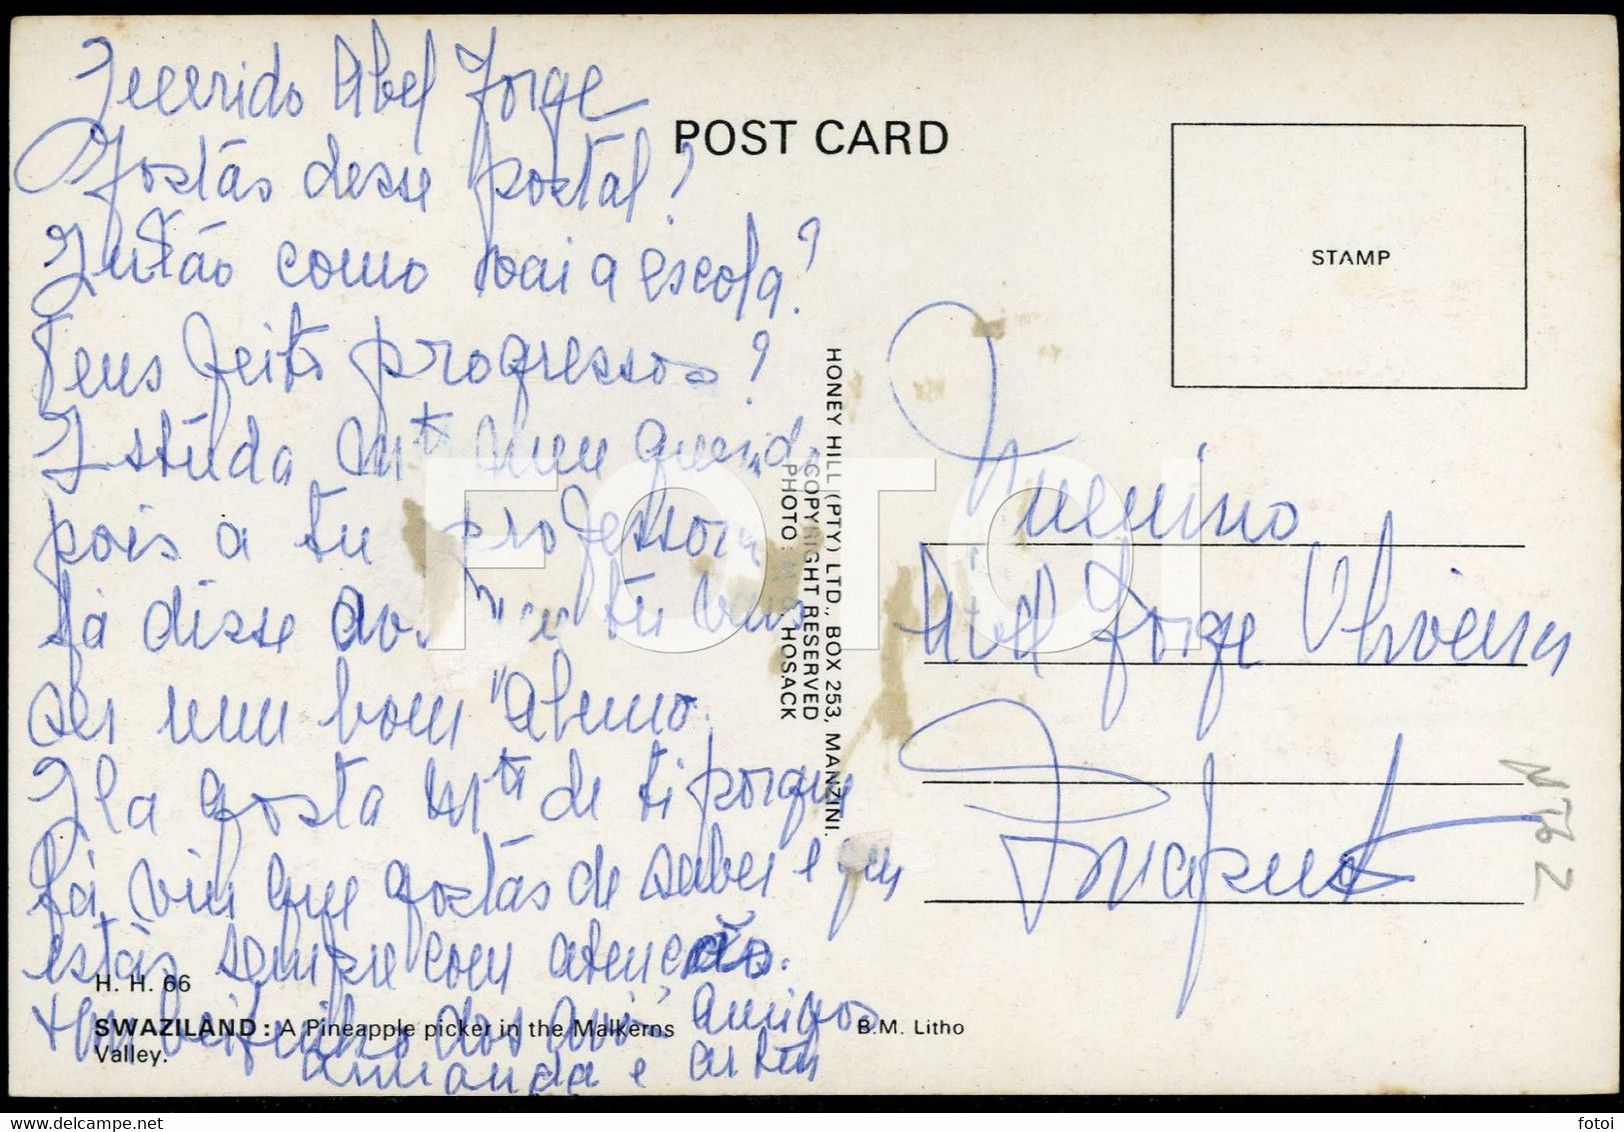 Querido Abel Jorge
Gostás desse postal?
Então como vai a escola?
Tens feito progressos?
Estuda mto meu querido
pois a tu professora
já disse aos tu vais
ser num bom aluno.
Ela gosta mto de ti porque
já viu que gostás de saber e que
estás sempre com atenção.
H. H. 66
Um beijinho dos avós amigos
SWAZILAND: A Pineapple picker in the Malkerns
Valley.
Armanda e
B.M. Litho
POST CARD
STAMP
HONEY HILL (PTY) LTD., BOX 253, MANZINI.
COPYRIGHT RESERVED
PHOTO: HOSACK
FOTOI
Menino
Abel Jorge Oliveira
Maputo
MTb 2
www.delcampe.net
fotoi